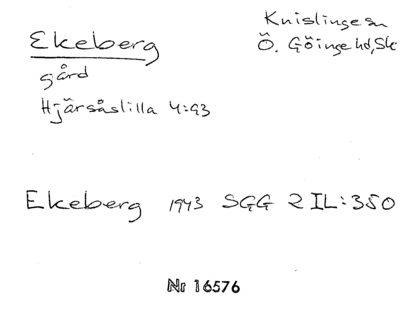 Ekeberg
gård
Hjärsåslilla 4:93
Knislinge sn
Ö. Göinge hd, Sk
Ekeberg 1943 SGG 2 IL:350
Nr 16576